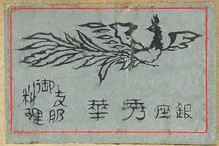 銀座 秀華
御支那料理